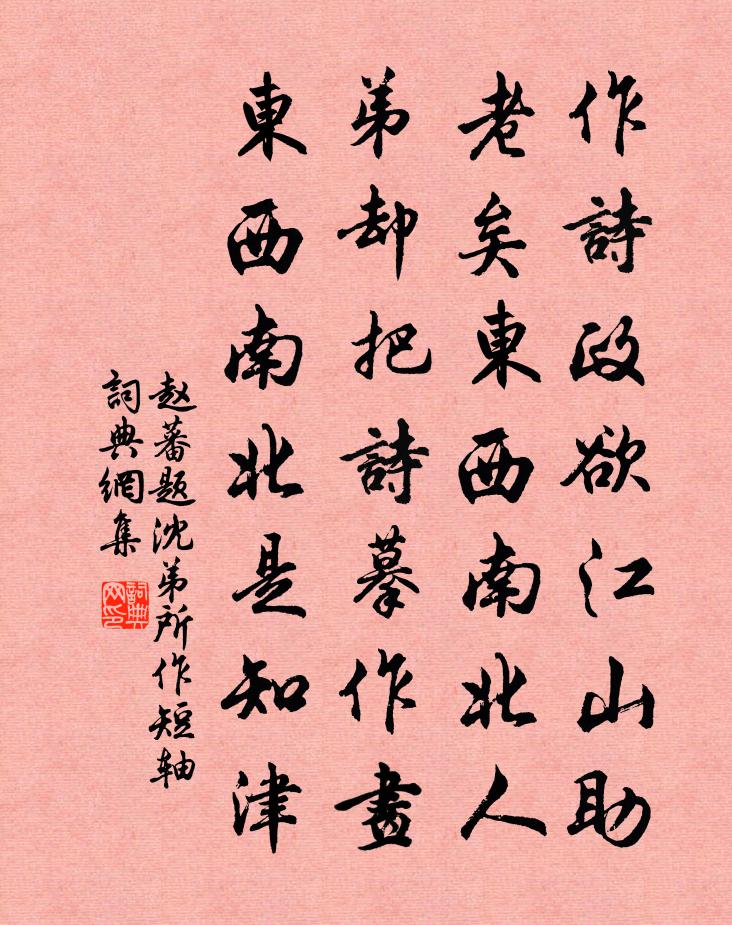 作詩政欲江山助
老矣東西南北人
弟却把詩摹作畫
東西南北是知津
赵蕃题沈弟所作短轴
詞典網集
詞典网印